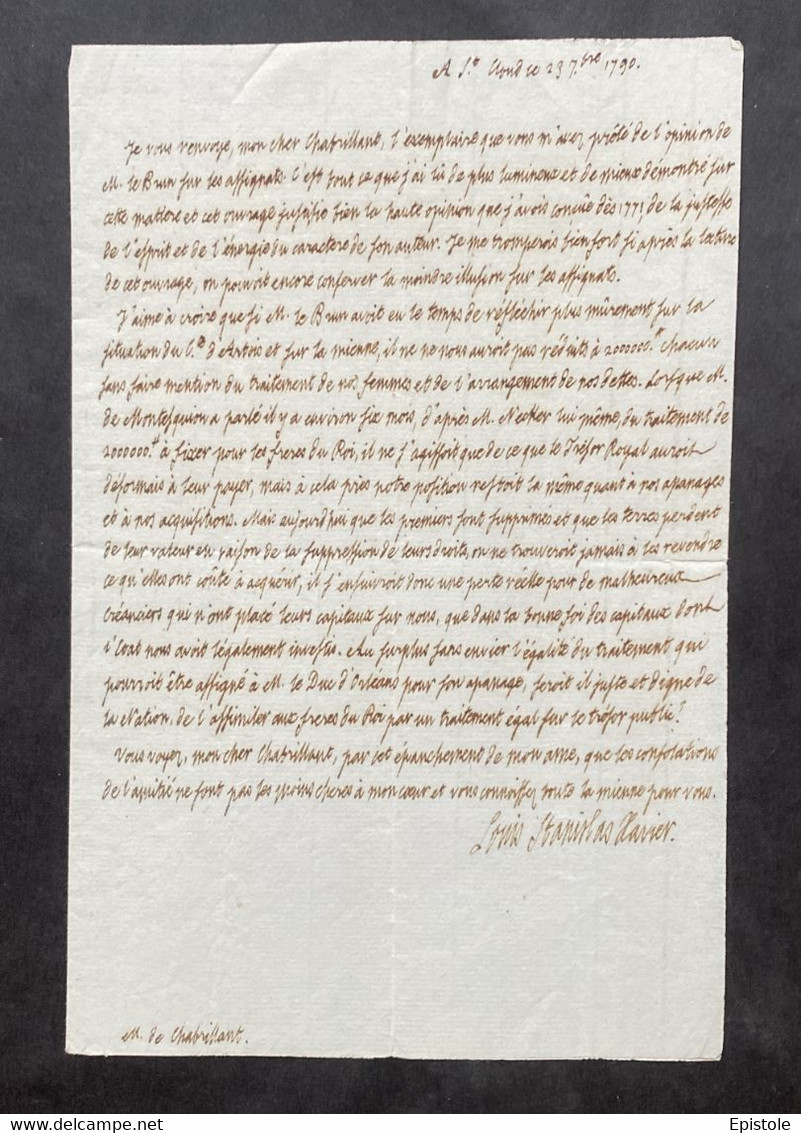 A S.t Cloud ce 23 7.bre 1790.
Je vous renvoye, mon cher Chabrillant, l'exemplaire que vous m'avez prêté de l'opinion de
M. le Brun sur les assignats. C'est tout ce que j'ai lû de plus lumineux et de mieux démontré sur
cette matiere et cet ouvrage justifie bien la haute opinion que j'avois concûe dès 1771, de la justesse
de l'esprit et de l'énergie du caractere de son auteur. Je me tromperois bien fort si après la lecture
de cet ouvrage, on pouvoit encore conserver la moindre illusion sur les assignats.
J'aime à croire que si M. le Brun avoit eu le temps de réfléchir plus mûrement sur la
situation du C.te d'Artois et sur la mienne, il ne nous auroit pas réduits à 2000000.tt chacun
sans faire mention du traitement de nos femmes et de l'arrangement de nos dettes. Lorsque M.
de Montesquiou a parlé il y a environ six mois, d'après M. Necker lui même, du traitement de
2000000.tt à fixer pour les freres du Roi, il ne s'agissoit que de ce que le Trésor Royal auroit
désormais à leur payer, mais à cela près notre position restoit la même quant à nos apanages
et à nos acquisitions. Mais aujourdhui que les premiers sont supprimés et que les terres perdent
de leur valeur en raison de la suppression de leurs droits, on ne trouveroit jamais à les revendre
ce qu'elles ont coûté à acquérir, il s'ensuivroit donc une perte réelle pour de malheureux
créanciers qui n'ont placé leurs capitaux sur nous, que dans la bonne foi des capitaux dont
l'Etat nous avoit légalement investis. Au surplus sans envier l'égalité du traitement qui
pourroit être assigné à M. le Duc d'Orléans pour son apanage, seroit il juste et digne de
la Nation, de l'assimiler aux freres du Roi par un traitement égal sur le trésor public?
Vous voyez, mon cher Chabrillant, par cet épanchement de mon ame, que les consolations
de l'amitié ne sont pas les moins cheres à mon cœur et vous connoissez toute la mienne pour vous.
Louis Stanislas Xavier.
M. de Chabrillant.
delcampe.net
Epistole